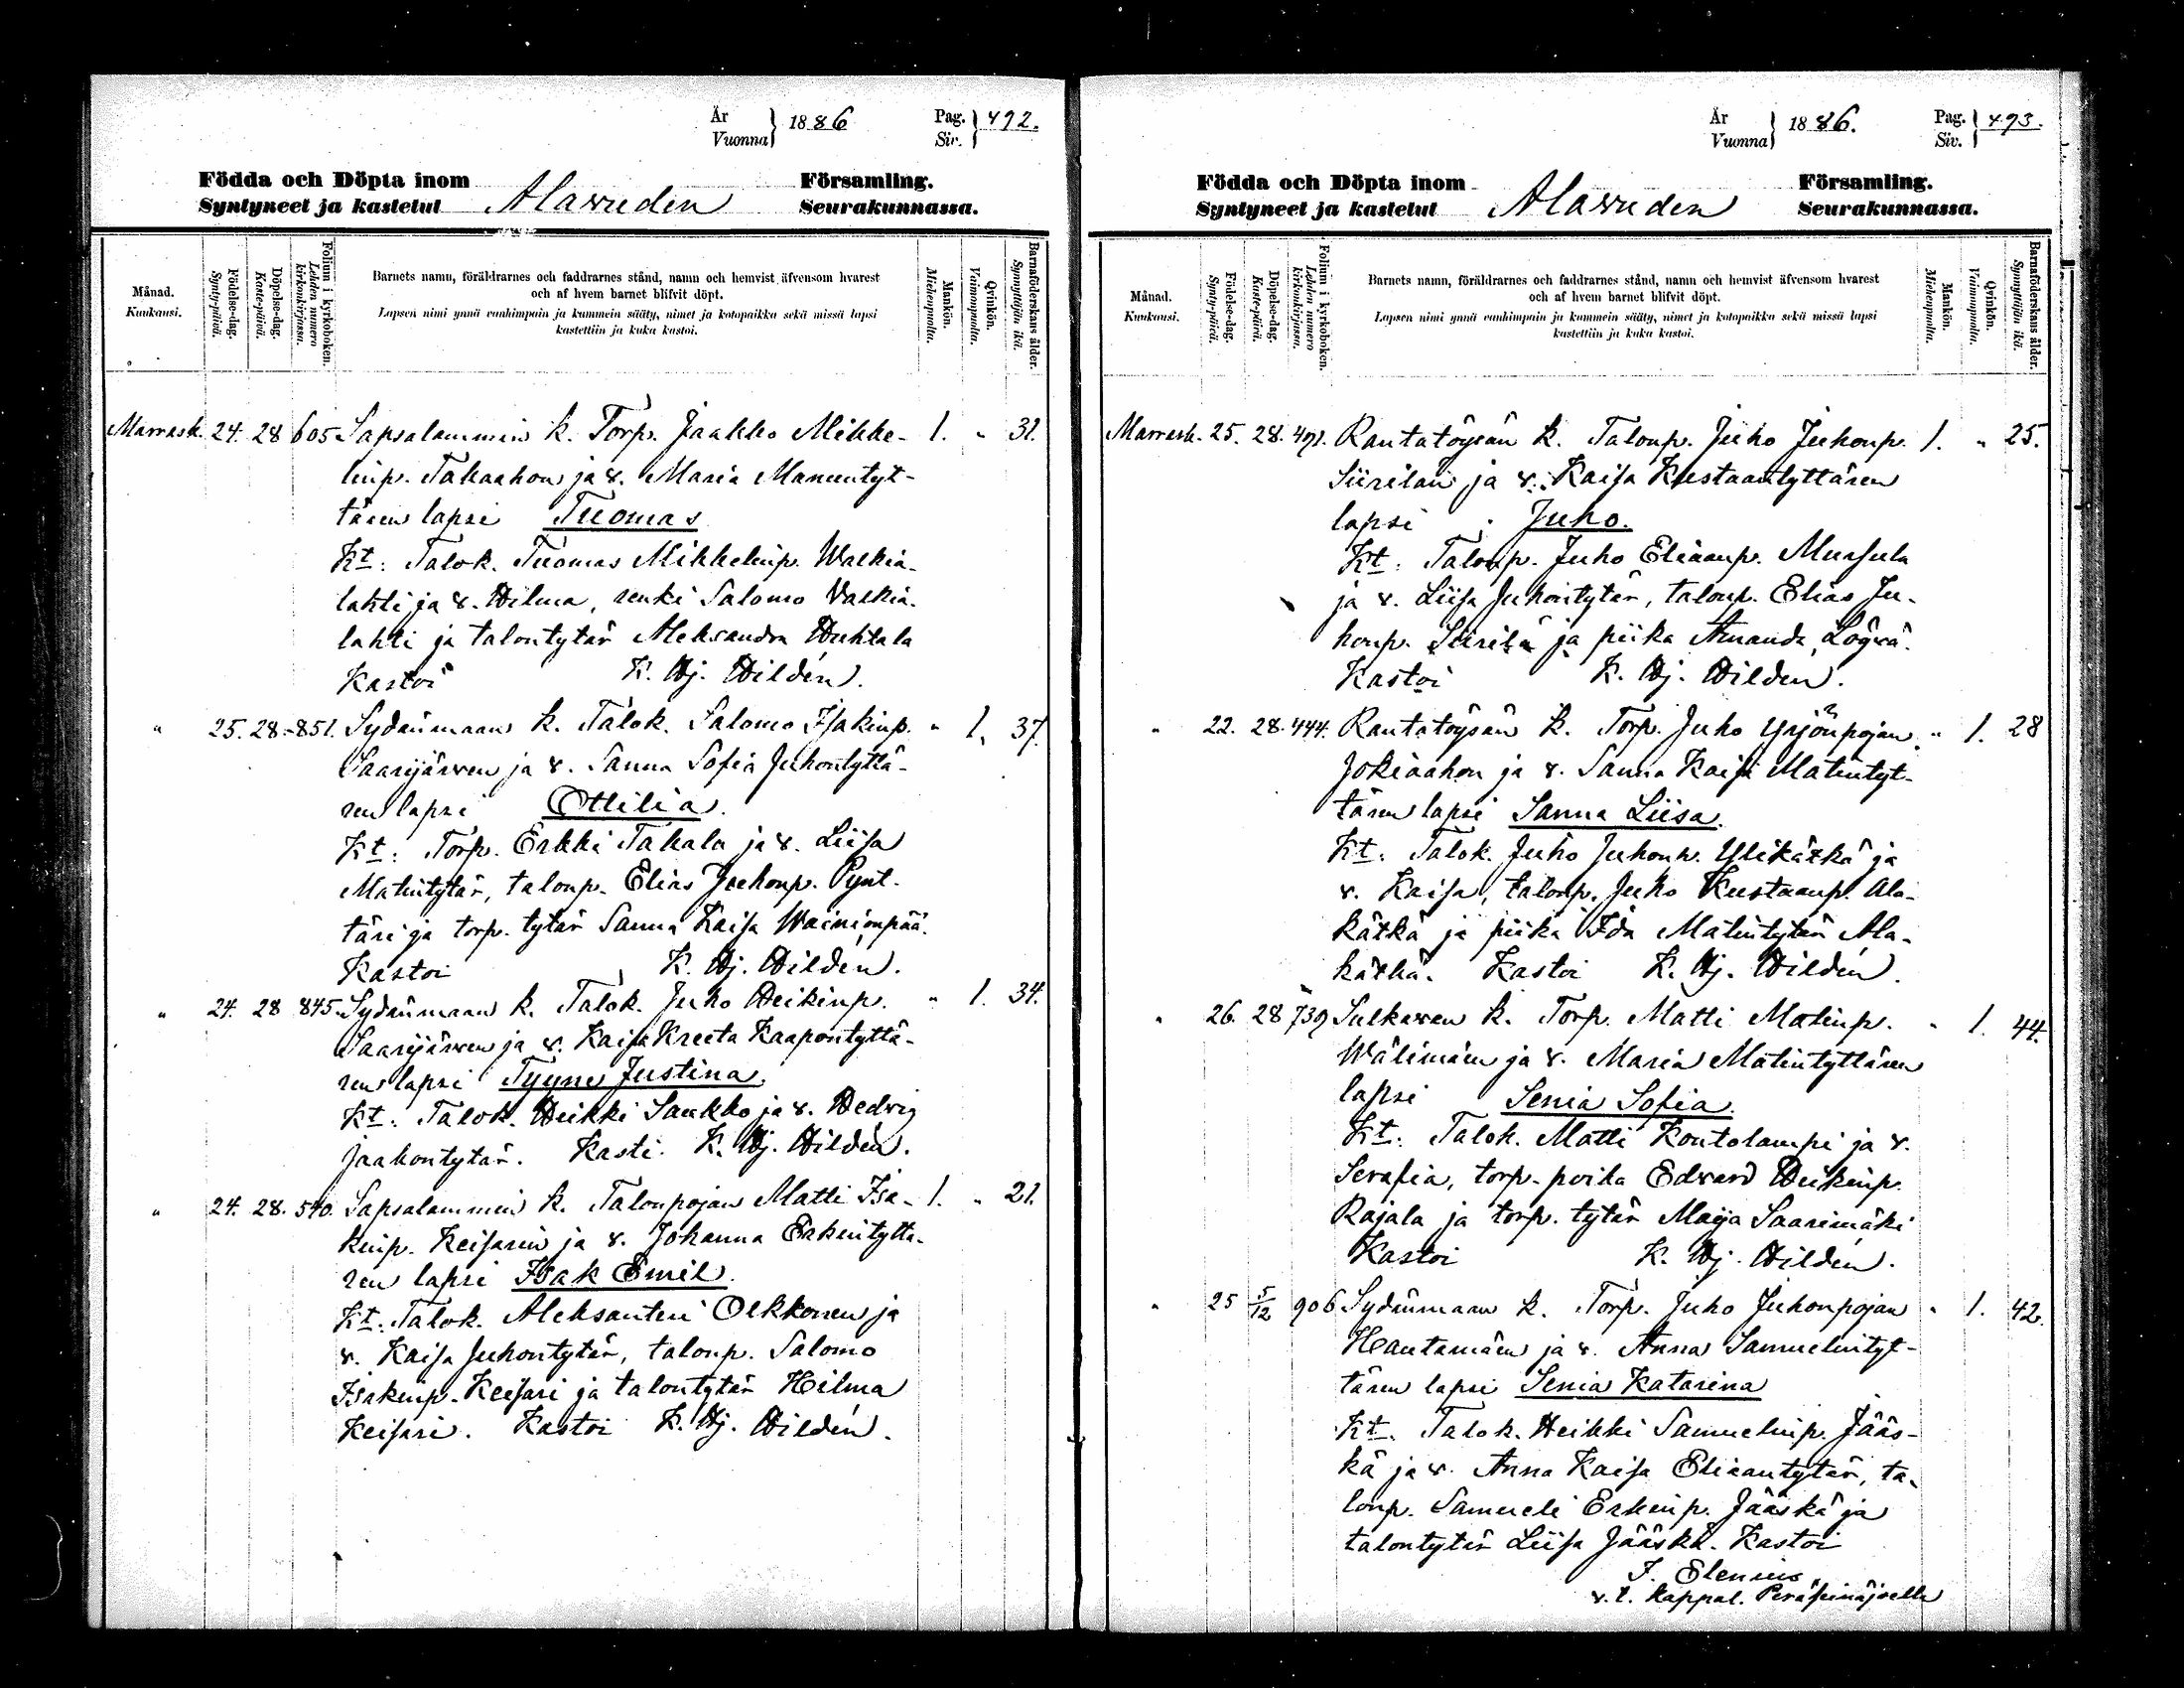 År
Vuonna } 1886
Pag.
Siv. } 492.
Födda och Döpta inom
Syntyneet ja kastetut
Alavuden
Församling.
Seurakunnassa.
Månad.
Kuukausi.
Födelse-dag.
Synty-päivä.
Döpelse-dag.
Kaste-päivä.
Folium i kyrkoboken.
Lehden numero
kirkonkirjassa.
Barnets namn, föräldrarnes och faddrarnes stånd, namn och hemvist äfvensom hvarest
och af hvem barnet blifvit döpt.
Lapsen nimi ynnä vanhimpain ja kummein sääty, nimet ja kotopaikka sekä missä lapsi
kastettiin ja kuka kastoi.
Mankön.
Miehenpuolta.
Qvinkön.
Vaimonpuolta.
Barnaföderskans ålder.
Synnyttäjän ikä.
Marrask. 24. 28 605 Sapsalammin k. Torp. Jaakko Mikke- 1. " 31.
linp. Takaahon ja v. Maria Manuntyt-
tären lapsi Tuomas
Kt: Talok. Tuomas Mikkelinp. Walkia-
lahti ja v. Hilma, renki Salomo Valkia-
lahti ja talontytär Aleksandra Huhtala
Kastoi K. Hj. Hildén.
" 25. 28. 851. Sydänmaan k. Talok. Salomo Isakinp. " 1. 37.
Saarijärven ja v. Sanna Sofia Juhontyttä-
ren lapsi Ottilia.
Kt: Torp. Erkki Takala ja v. Liisa
Matintytär, talonp. Elias Juhonp. Pynt-
täri ja torp. tytär Sanna Kaisa Wainionpää.
Kastoi K. Hj. Hildén.
" 24. 28 845. Sydänmaan k. Talok. Juho Heikinp. " 1. 34.
Saarijärven ja v. Kaisa Kreeta Kaapontyttä-
ren lapsi Tyyne Justina.
Kt: Talok. Heikki Saukko ja v. Hedvig
Jaakontytär. Kasti. K. Hj. Hildén.
" 24. 28. 540. Sapsalammin k. Talonpojan Matti Isa- 1. " 21.
kinp. Keisarin ja v. Johanna Erkintyttä-
ren lapsi Isak Emil.
Kt: Talok. Aleksanteri Olkkonen ja
v. Kaisa Juhontytär, talonp. Salomo
Isakinp. Keisari ja talontytär Hilma
Keisari. Kastoi K. Hj. Hildén.
År
Vuonna } 1886.
Pag.
Siv. } 493.
Födda och Döpta inom
Syntyneet ja kastetut
Alavuden
Församling.
Seurakunnassa.
Månad.
Kuukausi.
Födelse-dag.
Synty-päivä.
Döpelse-dag.
Kaste-päivä.
Folium i kyrkoboken.
Lehden numero
kirkonkirjassa.
Barnets namn, föräldrarnes och faddrarnes stånd, namn och hemvist äfvensom hvarest
och af hvem barnet blifvit döpt.
Lapsen nimi ynnä vanhimpain ja kummein sääty, nimet ja kotopaikka sekä missä lapsi
kastettiin ja kuka kastoi.
Mankön.
Miehenpuolta.
Qvinkön.
Vaimonpuolta.
Barnaföderskans ålder.
Synnyttäjän ikä.
Marrask. 25. 28. 491. Rantatöysän k. Talonp. Juho Juhonp. 1. " 25.
Siirilän ja v. Kaisa Kustaantyttären
lapsi Juho.
Kt: Talonp. Juho Eliaanp. Mursula
ja v. Liisa Juhontytär, talonp. Elias Ju-
honp. Siirilä ja piika Amanda Löyvä.
Kastoi K. Hj. Hildén.
" 22. 28. 444. Rantatöysän k. Torp. Juho Yrjönpojan " 1. 28
Jokiaahon ja v. Sanna Kaisa Matintyt-
tären lapsi Sanna Liisa.
Kt: Talok. Juho Juhonp. Ylikätkä ja
v. Kaisa, talonp. Juho Kustaanp. Ala-
kätkä ja piika Ida Matintytär Ala-
kätkä. Kastoi K. Hj. Hildén.
" 26. 28 739 Sulkavan k. Torp. Matti Matinp. " 1. 44.
Wälimäen ja v. Maria Matintyttären
lapsi Senia Sofia.
Kt: Talok. Matti Kontolampi ja v.
Serafia, torp. poika Edvard Heikinp.
Rajala ja torp. tytär Maija Saarimäki
Kastoi K. Hj. Hildén.
" 25 5/12 906 Sydänmaan k. Torp. Juho Juhonpojan " 1. 42.
Hautamäen ja v. Anna Samuelintyt-
tären lapsi Senia Katarina
Kt. Talok. Heikki Samuelinp. Jääs-
kä ja v. Anna Kaisa Eliaantytär, ta-
lonp. Samueli Erkinp. Jääskä ja
talontytär Liisa Jääskä. Kastoi
J. Elenius.
v.t. Kappal. Peräseinäjoella